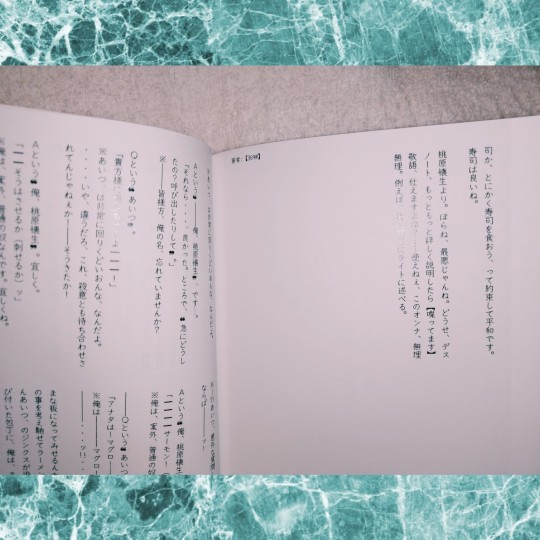 司か、とにかく寿司を食おう、って約束して平和です。
寿司は良いね。
桃原懐生より。ほらね、最悪じゃんね。どうせ、デス
ノート、もっともっと詳しく説明したら【喋ってます】
敬語、仕えますよ
使えねぇ、このオンナ、無理
無理。例えば、
ライトに述べる。
Aという❝俺、桃原懐生❞、です。
「それなら・・・、良かった。ところで、❝急にどうし
たの？呼び出したりして❞。」
※―――皆様方、俺の名、忘れていませんか？
○という❝あいつ❞。
「貴方様
※あいつ、は非常に回りくどいおんな、なんだよ。
・・・、いや、違うだろ、これ、殺意とも待ち合わせさ
れてんじゃねぇか―――そうきたか！
Aという❝俺、桃原懐生❞。宜しく。
「――そうはさせるか（刺せるか）？」
※俺は、案外、普通の奴なんです。宜しくね。
ならば
Aという❝俺、桃原懐生
「―――サーモン！
※俺は、案外、普通の奴
―――○という❝あいつ
「アナタは―マグロ―
※俺は―――マグロ―
まな板になってみせるん
の事を考え馳せてラーメ
んあいつ、のジンクスが
び付いた包丁に、俺は、